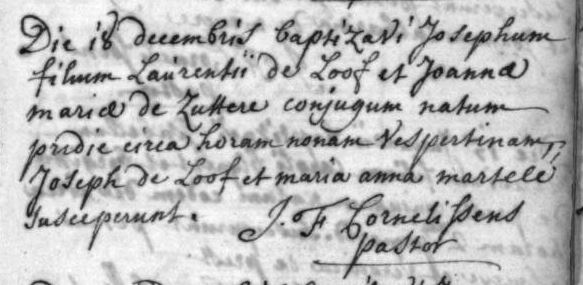 Die 18 decembris baptizavi Josephum
filium Laurentii de Loof et Joannæ
mariæ de Zuttere conjugum natum
pridie circa horam nonam vespertinam,
Joseph de Loof et maria anna martelé
susceperunt. J. F Cornelissens
pastor